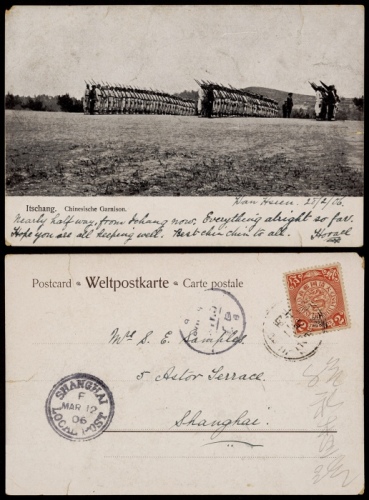 Itschang. Chinesische Garnison.
Wan Hsien. 27/2/06.
Nearly half way, from Ichang now. Everything alright so far.
Hope you are all keeping well. Best chin chin to all. Horace
Postcard - Weltpostkarte - Carte postale
Mrs S. E. Samples
5 Astor Terrace.
Shanghai.
SHANGHAI
F
MAR 12
06
LOCAL POST
2
2